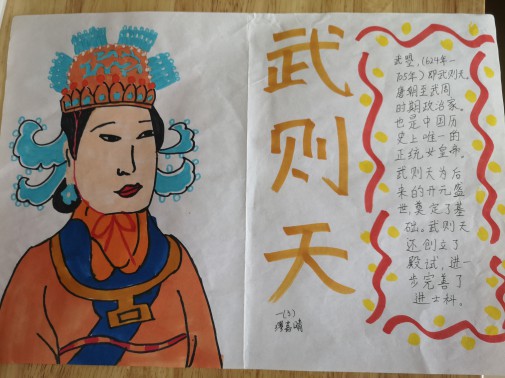 武则天
武曌,(624年一
705年)即武则天。
唐朝至武周
时期政治家。
也是中国历
史上唯一的
正统女皇帝。
武则天为后
来的开元盛
世,奠定了基
础。武则天
还创立了
殿试,进一
步完善了
进士科。
一(3)